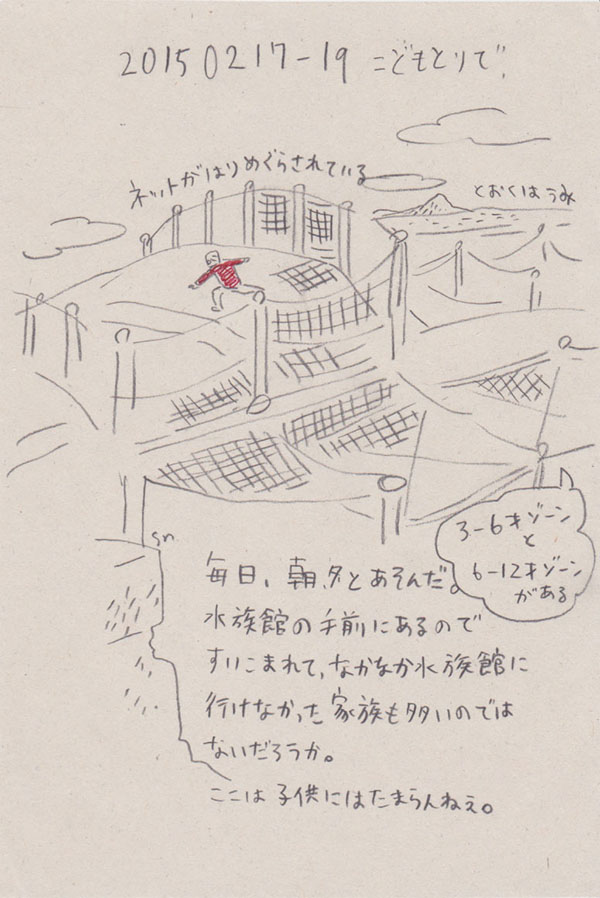 20150217-19 こどもとりで
ネットがはりめぐらされている
とおくはうみ
3-6才ゾーン
と
6-12才ゾーン
がある
毎日、朝、夕とあそんだ。
水族館の手前にあるので
すいこまれて、なかなか水族館に
行けなかった家族も多いのでは
ないだろうか。
ここは子供にはたまらんねぇ。